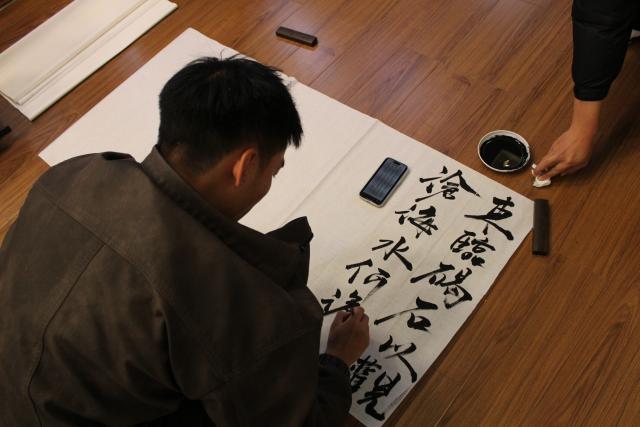 東臨碣石以觀
滄海水何